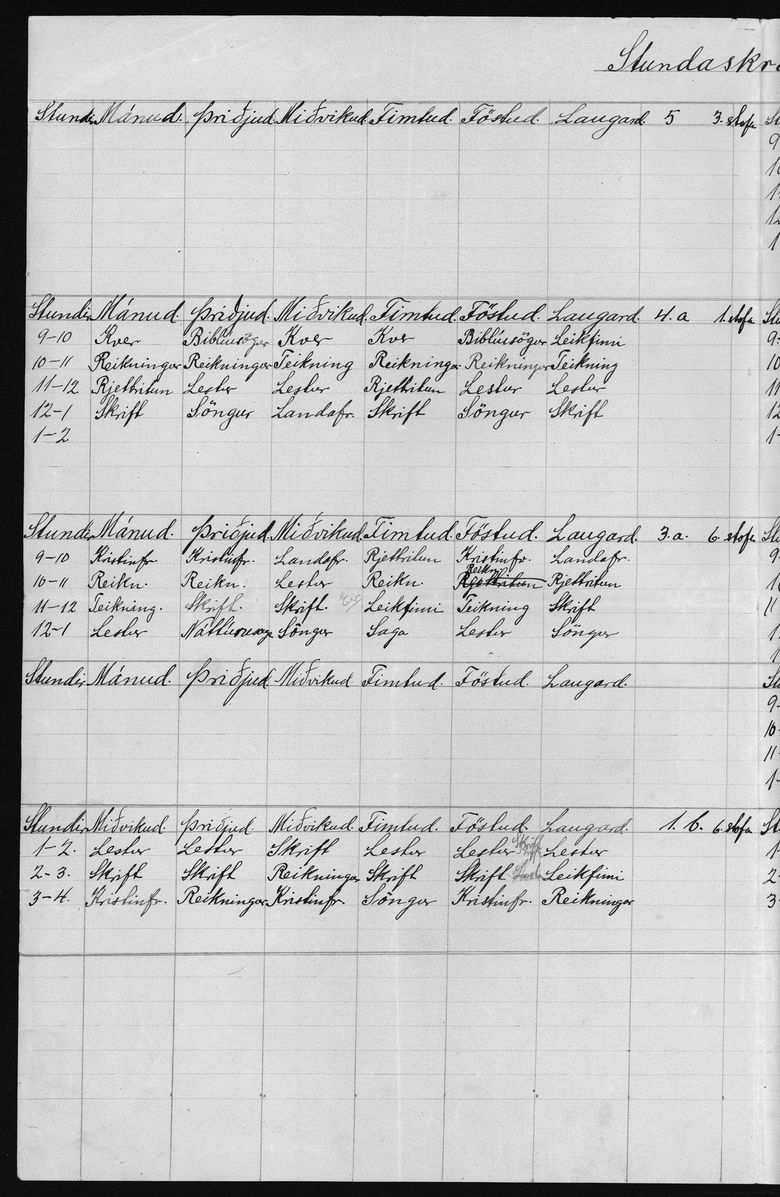 Stundaskr
Stundir Mánud. Þriðjud. Miðvikud. Fimtud. Föstud. Laugard. 5 3. stofa
Stundir Mánud. Þriðjud. Miðvikud. Fimtud. Föstud. Laugard. 4. a 1. stofa
9-10 Kver Biblíusögur Kver Kver Biblíusögur Leikfimi
10-11 Reikningur Reikningur Teikning Reikningur Reikningur Teikning
11-12 Rjettritun Lestur Lestur Rjettritun Lestur Lestur
12-1 Skrift Söngur Landafr. Skrift Söngur Skrift
1-2
Stundir Mánud. Þriðjud. Miðvikud. Fimtud. Föstud. Laugard. 3. a. 6. stofa
9-10 Kristinfr. Kristinfr. Landafr. Rjettritun Kristinfr. Landafr.
10-11 Reikn. Reikn. Lestur Reikn. Reikn. Rjettritun Rjettritun
11-12 Teikning. Skrift. Skrift. Leikfimi Teikning Skrift
12-1 Lestur Náttúrusaga Söngur Saga Lestur Söngur
Stundir Mánud. Þriðjud. Miðvikud. Fimtud. Föstud. Laugard.
Stundir Miðvikud. Þriðjud. Miðvikud. Fimtud. Föstud. Laugard. 1. b. 6. stofa
1-2. Lestur Lestur Skrift Lestur Lestur Skrift Lestur
2-3. Skrift Skrift Reikningur Skrift Skrift Leikfimi
3-4. Kristinfr. Reikningur Kristinfr. Söngur Kristinfr. Reikningur